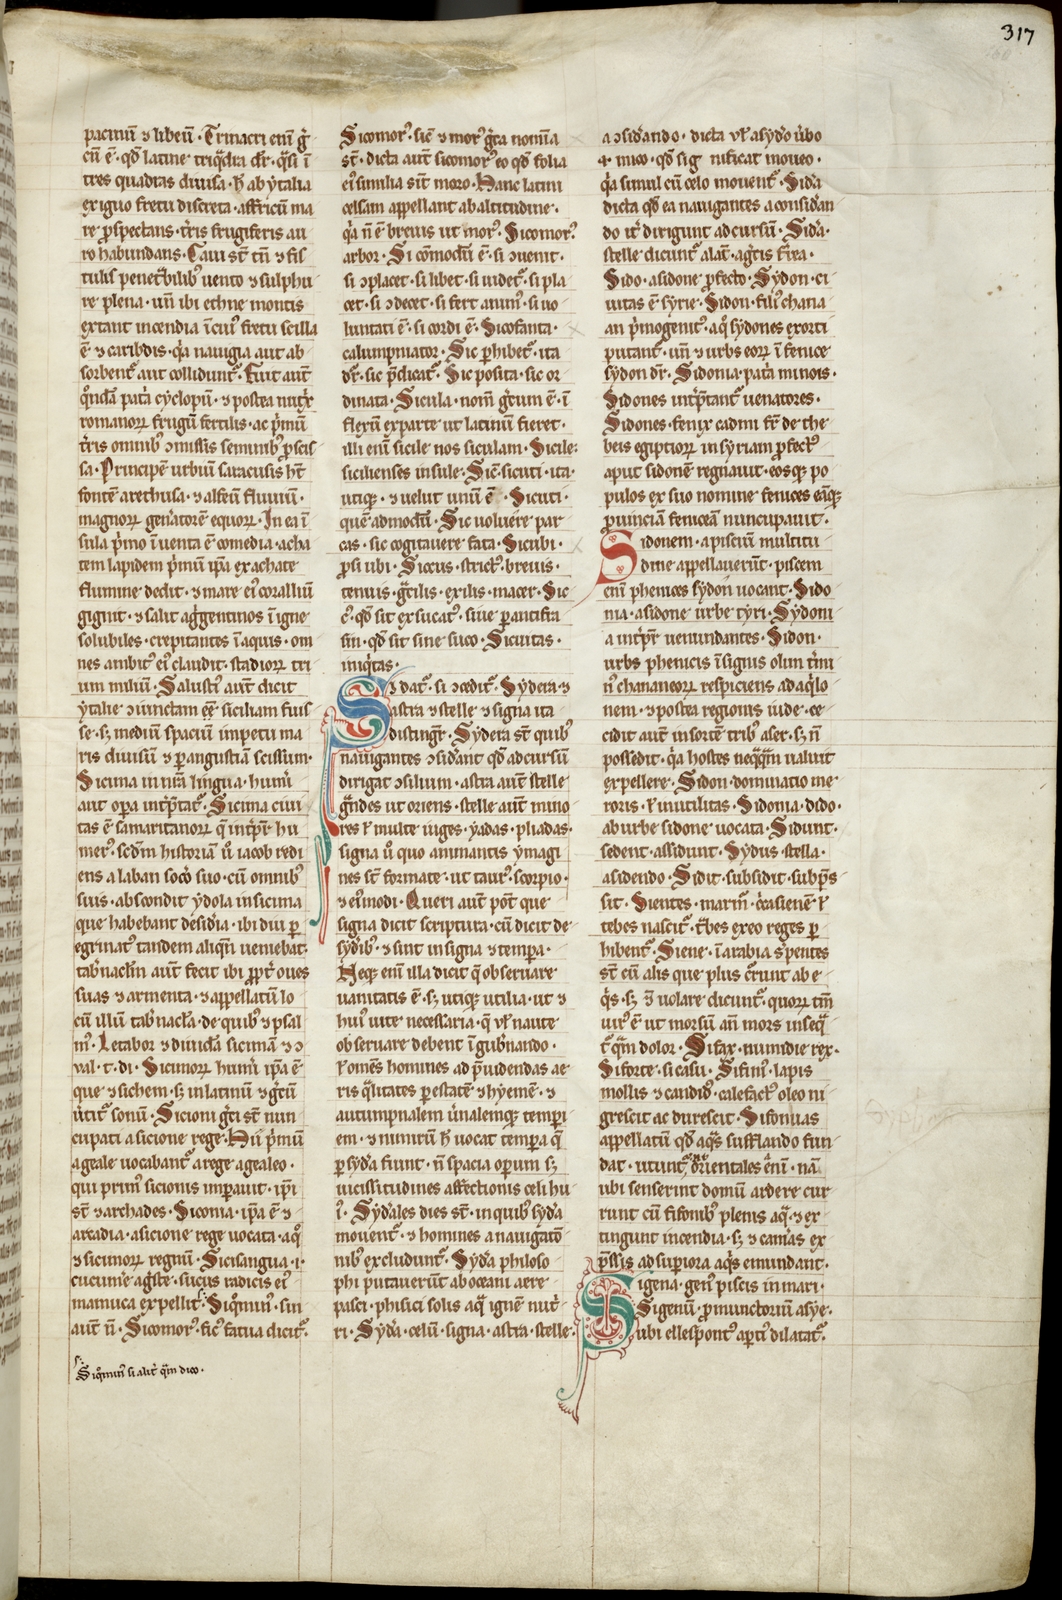 317
pacinū ⁊ libeū. Trinacri enī gͥ
cū ē. qđ latine triq̄dra dr̄. q̄si ī
tres quadras diuisa. h̄ ab ytalia
exiguo fretu discreta. affricū ma
re ꝓspectans. t̄ris frugiferis au
ro habundans. Caui st̄ tn̄ ⁊ fis
tulis penet̾bilib⁹ uento ⁊ sulphu
re plena. un̄ ibi ethne montis
extant incendia ī cui⁹ fretu scilla
ē ⁊ caribdis. q̾a nauigia aut ab
sorbent᷑ aut collidunt᷑. Fuit aut̄
q̊ndā pat̾a cyclopū. ⁊ postea nut̾x
romanoꝝ frugū fertilis. ac p̾mū
t̄ris omnib⁹ ↄmissis seminib⁹ ꝓscis
sa. Principē urbiū siracusis ht̄
fontē arethusa. ⁊ alfeū fluuiū.
magnoꝝ gen̾atorē equoꝝ. In ea ī
sula p̾mo īuenta ē comedia. acha
tem lapidem p̾mū ip̄a ex achate
flumine dedit. ⁊ mare ei⁹ coralliū
gignit. ⁊ salit ag̾gentinos ī igne
solubiles. crepitantes ī aquis. om
nes ambit⁹ ei⁹ claudit. stadioꝝ tri
um miliū. Salusti⁹ aut̄ dicit
ytalie ↄiunctam eē siciliam fuis
se. sꝫ mediū spaciū impetu ma
ris diuisū ⁊ ꝑ angustiā scissum.
Sicima in nr̄a lingua. humi
aut oꝑa int̾p̄tat᷑. Sicima ciui
tas ē samaritanoꝝ q̄ int̾pr̄ hu
mer⁹. scd̄m historiā ū iacob redi
ens a laban soc̾o suo. cū omnib⁹
suis. abscondit ydola in sicima
que habebant desidia. ibi diu ꝑ
egrinat⁹ tandem aliq̄n ueniebat.
tab̾naclm̄ aut̄ fecit ibi ꝓpt̾ oues
suas ⁊ armenta. ⁊ appellatū lo
cū illum tab̾nacl̄a. de quib⁹ ⁊ psal
m⁹. Letabor ⁊ diuidā sicimā ⁊ ↄ
val. t. di. Sicimoꝝ hum̾i ip̄a ē
que ⁊ sichem. sꝫ in latinū ⁊ g̾cū
u̾tit᷑ sonū. Sicioni g̾ci st̄ nun
cupati a sicione rege. Hii p̾mū
ageale vocabant᷑ a rege agealeo.
qui prim⁹ sicionis imꝑauit. ip̄i
st̄ ⁊ archades. Siconia. ip̄a ē ⁊
arcadia. a sicione rege vocata. a q̊
⁊ sicimoꝝ regnū. Sicisangua .i.
cucum̾e ag̾ste. sucus radicis ei⁹
mamuca expellit. Siq̊min⁹. sin
aut̄ n̄. Sicomor⁹. fic⁹ fatua dicit᷑.
Siq̊min⁹ si alit̾ q̄m dico.
Sicomor⁹. sic̄ ⁊ mor⁹ g̾ca nom̄ia
st̄. dicta aut̄ sicomor⁹ eo qđ folia
ei⁹ similia sūt moro. Hanc latini
celsam appellant ab altitudine.
q̾a n̄ ē breuis ut mor⁹. Sicomor⁹
arbor. Si cōmodū ē. si ↄuenit.
si ↄplacet. si libet. si uidet᷑. si pla
cet. si ↄdecet. si fert anim⁹. si uo
luntati ē. si cordi ē. Sicofanta.
calumpniator. Sic ꝑhibet᷑. ita
dr̄. sic p̄dicat᷑. Sic posita. sic or
dinata. Sicula. nom̄ g̾cum ē. ī
flexū ex parte ut latinū fieret.
illi enī sicile nos siculam. Sicile.
sicilienses insule. Sic̄. sicuti. ita.
utiqꝫ. ⁊ uelut unū ē. Sicuti.
quēadmodū. Sic uoluēre par
cas. sic cogitauere fata. Sicubi.
ꝓsi ubi. Siccus. strict⁹. breuis.
tenuis. g̾cilis. exilis. macer. Sic
c⁹. qđ sit exsucat⁹. siue ꝑ antifra
sin. qđ sit sine suco. Sicuitas.
iniq̾tas.
Si dat᷑. si ↄcedit᷑. Sydera ⁊
astra ⁊ stelle ⁊ signa ita
distingr̄. Sydera st̄ quib⁹
nauigantes ↄsidāt qđ ad cursū
dirigāt ↄsilium. astra aut̄ stelle
g̾ndes ut oriens. stelle aut̄ mino
res ł multe iuges. yadas. pliadas.
signa ū quo animantis ymagi
nes st̄ formate. ut taur⁹. scorpio.
⁊ ei⁹modi. Queri aut̄ pōt que
signa dicit scriptura. cū dicit de
syd̾ib⁹. ⁊ sint in signa ⁊ tempa.
Neqꝫ enī illa dicit q̄ obseruare
uanitatis ē. sꝫ utiqꝫ utilia. ut ⁊
hui⁹ uite necess̾aria. q̄ vł naute
obseruare debent ī gub̾nando.
ł om̄es homines ad p̄uidendas ae
ris q̾litates ꝑ estatē ⁊ hyemē. ⁊
autumpnalem u̾nalemqꝫ temꝑi
em. ⁊ nimirū h̄ uocat tempa q̄
ꝑ syd̾a fiunt. n̄ spacia opum sꝫ
uicissitudines affectionis celi hu
i⁹. Syd̾ales dies st̄. in quib⁹ syd̾a
mouent᷑. ⁊ homines a nauigatō
nib⁹ excludunt᷑. Syd̾a philoso
phi putauerūt ab oceani aere
pasci. phisici solis aq̄ ignē nut̾
ri. Syd̾a. celū. signa. astra. stelle.
a ↄsid̾ando. dicta vł a sydo u̾bo
⁊ mico. qđ significat moueo.
q̾a simul cū celo mouent᷑. Sid̾a
dicta qđ ea nauigantes a consid̾an
do it̾ dirigunt ad cursū. Sid̾a.
stelle dicunt᷑ alat᷑. ag̾tis fixa.
Sido. a sidone ꝓfecto. Sydon. ci
uitas ē syrie. Sidon. fili⁹ chana
an p̾mogenit⁹. a q̊ sydones exorti
putant᷑. un̄ ⁊ urbs eoꝝ ī fenice
sydon dr̄. Sidonia. pat̾a minois.
Sidones int̾p̄tant᷑ uenatores.
Sidones. fenix cadmi fr̄ de the
beis egiptioꝝ in syriam ꝓfect⁹
aput sidonē regnauit. eosqꝫ po
pulos ex suo nomine fenices eāqꝫ
ꝓuinciā feniceā nuncupauit.
Sidonem. a pisciū multitu
dine appellauerūt. piscem
enī phenices sydon uocant. Sido
nia. a sidone urbe tyri. Sydoni
a int̾pr̄ uenundantes. Sidon.
urbs phenicis īsignis olim t̾mi
n⁹ chananeoꝝ respiciens ad aq̾lo
nem. ⁊ postea regionis iude. ce
cidit aut̄ in sortē trib⁹ aser. sꝫ n̄
possedit. q̾a hostes neqq̄ m ualuit
expellere. Sidon. dominatio me
roris. ł inutilitas. Sidonia. dido.
ab urbe sidone uocata. Sidunt.
sedent. assidunt. Sydus. stella.
a sidendo. Sidit. subsidit. subp̄s
sit. Sientes. marm̾. c̾ca sienē ł
tebes nascit᷑. t̾bes ex eo reges ꝑ
hibent᷑. Siene. ī arabia s̾pentes
st̄ cū alis que plus c̾runt ab e
q̾s. sꝫ ⁊ volare dicunt᷑. quoꝝ tm̄
uir⁹ ē ut morsū an̄ mors inseq̄
t᷑ q̄m dolor. Sifax. numidie rex.
Siforte. si casu. Sifini⁹. lapis
mollis ⁊ candid⁹. calefact⁹ oleo ni
grescit ac durescit. Sifonuas
appellatū qđ aq̾s sufflando fun
dat. utunt᷑ orientales enī. nā
ubi senserint domū ardere cur
runt cū sifonib⁹ plenis aq̄. ⁊ ex
tingunt incendia. sꝫ ⁊ cam̾as ex
p̄ssis ad suꝑiora aq̾s emundant.
Sigena. gen⁹ piscis in mari.
Sigeuū. ꝓmunctoriū asye.
ubi ellespont⁹ aꝑti⁹ dilatat᷑.